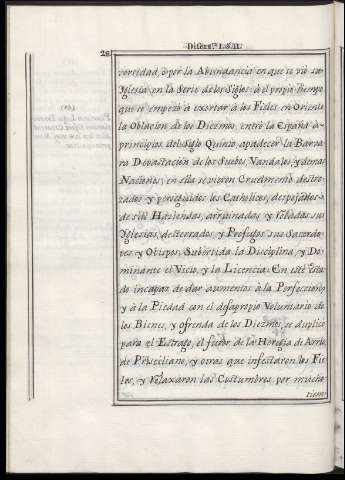 Discurs.º I. §. II.
28.
versidad, ò por la Abundancia en que se viò su
Iglesia en la Serie de los Siglos: à el propio tiempo
que se empezò a exortar à los Fieles en Oriente
la Oblacion de los Diezmos, entrò la España à
principios del Siglo Quinto, apadecer la Barva-
ra Devastacion de los Suebos, Vandalos, y demas
Naciones; en ella se vieron Cruelmente destro-
zados y perseguidos los Catholicos, despojados
de sus Haciendas, arruinadas y robadas sus
Iglesias, desterrados, y Profugos sus Sacerdo-
tes y Obispos, Subvertida la Disciplina, y Do-
minante el Vicio, y la Licencia: En este esta-
do incapaz de dar aumentos à la Perfeccion,
y à la Piedad con el desapropio Voluntario de
los Bienes, y ofrenda de los Diezmos, se duplicò
para el Estrago, el furor de la Heregia de Arrio,
de Prisciliano, y otras que infestaron los Fie-
les, y relaxaron las Costumbres por mucho
tiem-